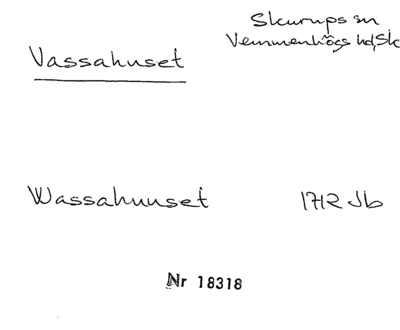 Skurups sn
Vassahuset
Vemmenhögs hd, Sk
Wassahuuset 1712 Jb
Nr 18318